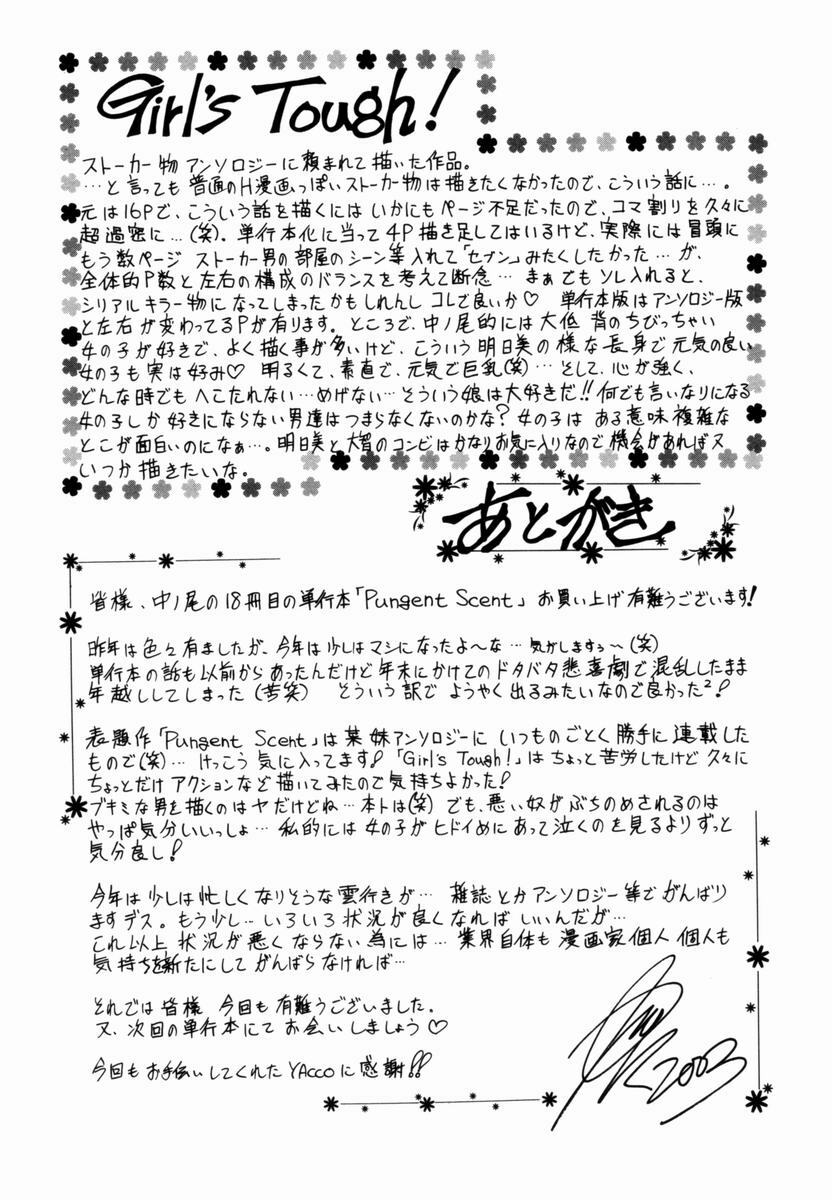 Girl's Tough!
ストーカー物アンソロジーに頼まれて描いた作品。
…と言っても普通のH漫画っぽいストーカー物は描きたくなかったので、こういう話に…。
元は16Pで、こういう話を描くにはいかにもページ不足だったので、コマ割りを久々に
超過密に…(笑)。単行本化に当って4P描き足してはいるけど、実際には冒頭に
もう数ページ ストーカー男の部屋のシーン等入れて「セブン」みたくしたかった…が、
全体的P数と左右の構成のバランスを考えて断念… まぁでもソレ入れると、
シリアルキラー物になってしまったかもしれんし コレで良いか♡ 単行本版はアンソロジー版
と左右が変わってるPが有ります。ところで、中ノ尾的には大低 背のちびっちゃい
女の子が好きで、よく描く事が多いけど、こういう明日美の様な長身で元気の良い
女の子も実は好み♡ 明るくて、素直で、元気で巨乳(笑)… そして、心が強く、
どんな時でもへこたれない…めげない…そういう娘は大好きだ!!何でも言いなりになる
女の子しか好きにならない男達はつまらなくないのかな?女の子は ある意味複雑な
とこが面白いのになぁ…。明日美と大智のコンビはかなりお気に入りなので機会があれば又
いつか描きたいな。
あとがき
皆様、中ノ尾の18冊目の単行本「Pungent Scent」お買い上げ有難うございます!
昨年は色々有りましたが、今年は少しはマシになったよ〜な…気がしますぅ〜(笑)
単行本の話も以前からあったんだけど年末にかけてのドタバタ悲喜劇で混乱したまま
年越ししてしまった(苦笑) そういう訳で ようやく出るみたいなので良かった²!
表題作「Pungent Scent」は某 妹アンソロジーに いつものごとく勝手に連載した
もので(笑)… けっこう気に入ってます!「Girl's Tough!」はちょっと苦労したけど久々に
ちょっとだけアクションなど描いてみたので気持ちよかった!
ブキミな男を描くのはヤだけどね…本トは(笑) でも、悪い奴がぶちのめされるのは
やっぱ気分いいっしょ… 私的には女の子がヒドイめにあって泣くのを見るよりずっと
気分良し!
今年は少しは忙しくなりそうな雲行きが… 雑誌とかアンソロジー等でがんばり
ますデス。もう少し…いろいろ状況が良くなればいいんだが…
これ以上 状況が悪くならない為には… 業界自体も漫画家個人個人も
気持ちを新たにしてがんばらなければ…
それでは皆様 今回も有難うございました。
又、次回の単行本にてお会いしましょう♡
今回もお手伝いしてくれたYAccoに感謝!!
2003